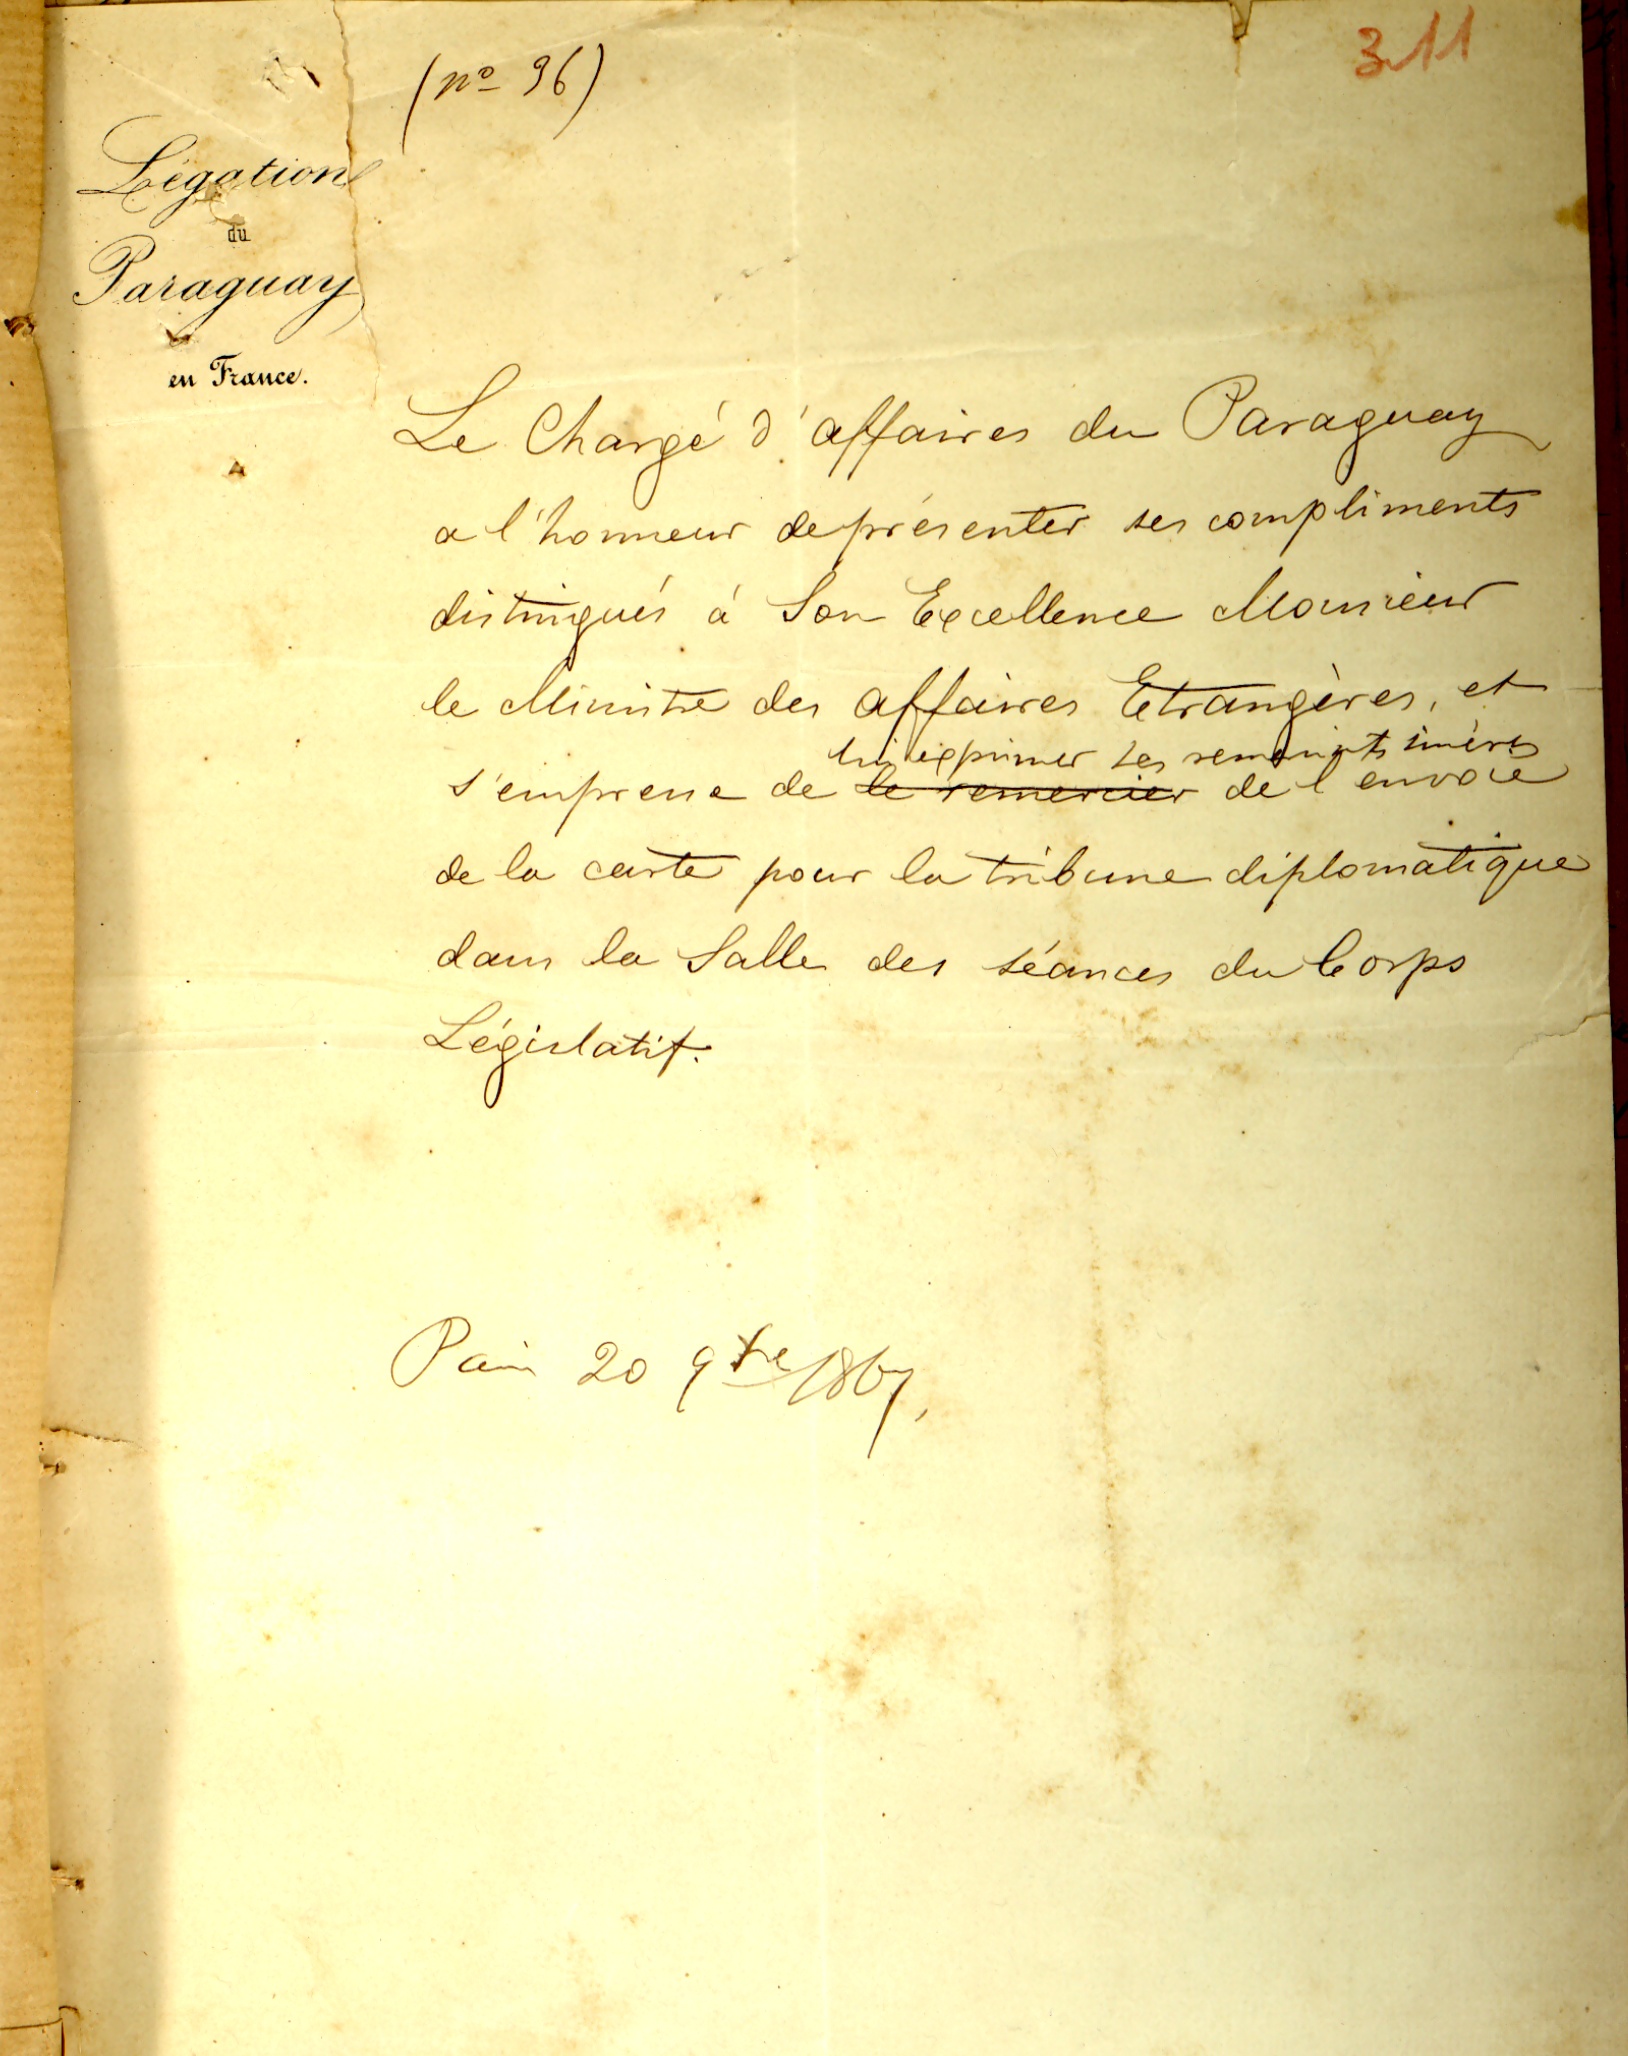 311
(nº 96)
Légation
du
Paraguay
en France.
Le Chargé d'affaires du Paraguay
a l'honneur de présenter ses compliments
distingués à Son Excellence Monsieur
le Ministre des affaires Etrangères, et
lui exprimer ses remerciemts sincères
s'empresse de le remercier de l'envoie
de la carte pour la tribune diplomatique
dans la Salle des séances du Corps
Législatif.
Paris 20 9bre 1867,